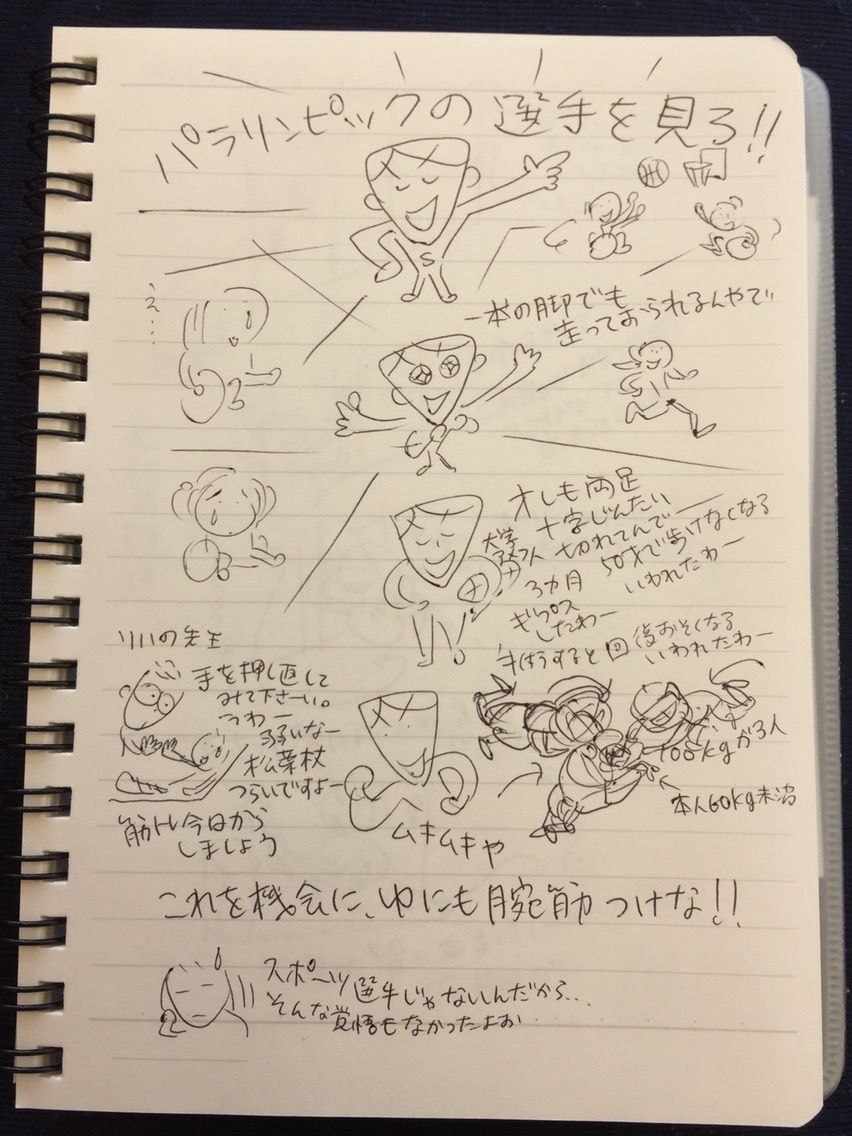 パラリンピックの選手を見ろ!!
え…
一本の脚でも
走っておられるんやで
オレも両足
十字じんたい
切れてんでー
大学
アメフト
50才で歩けなくなる
いわれたわー
3ヵ月
ギプス
したわー
手術すると回復おそくなる
いわれたわー
リハの先生
手を押し直して
みて下さーい。
うわー
弱いなー
松葉杖
つらいですよー
筋トレ今日から
しましょう
100kgが3人
本人60kg未満
ムキムキや
これを機会に、ゆにも腕筋つけな!!
スポーツ選手じゃないんだから…
そんな覚悟もなかったよお